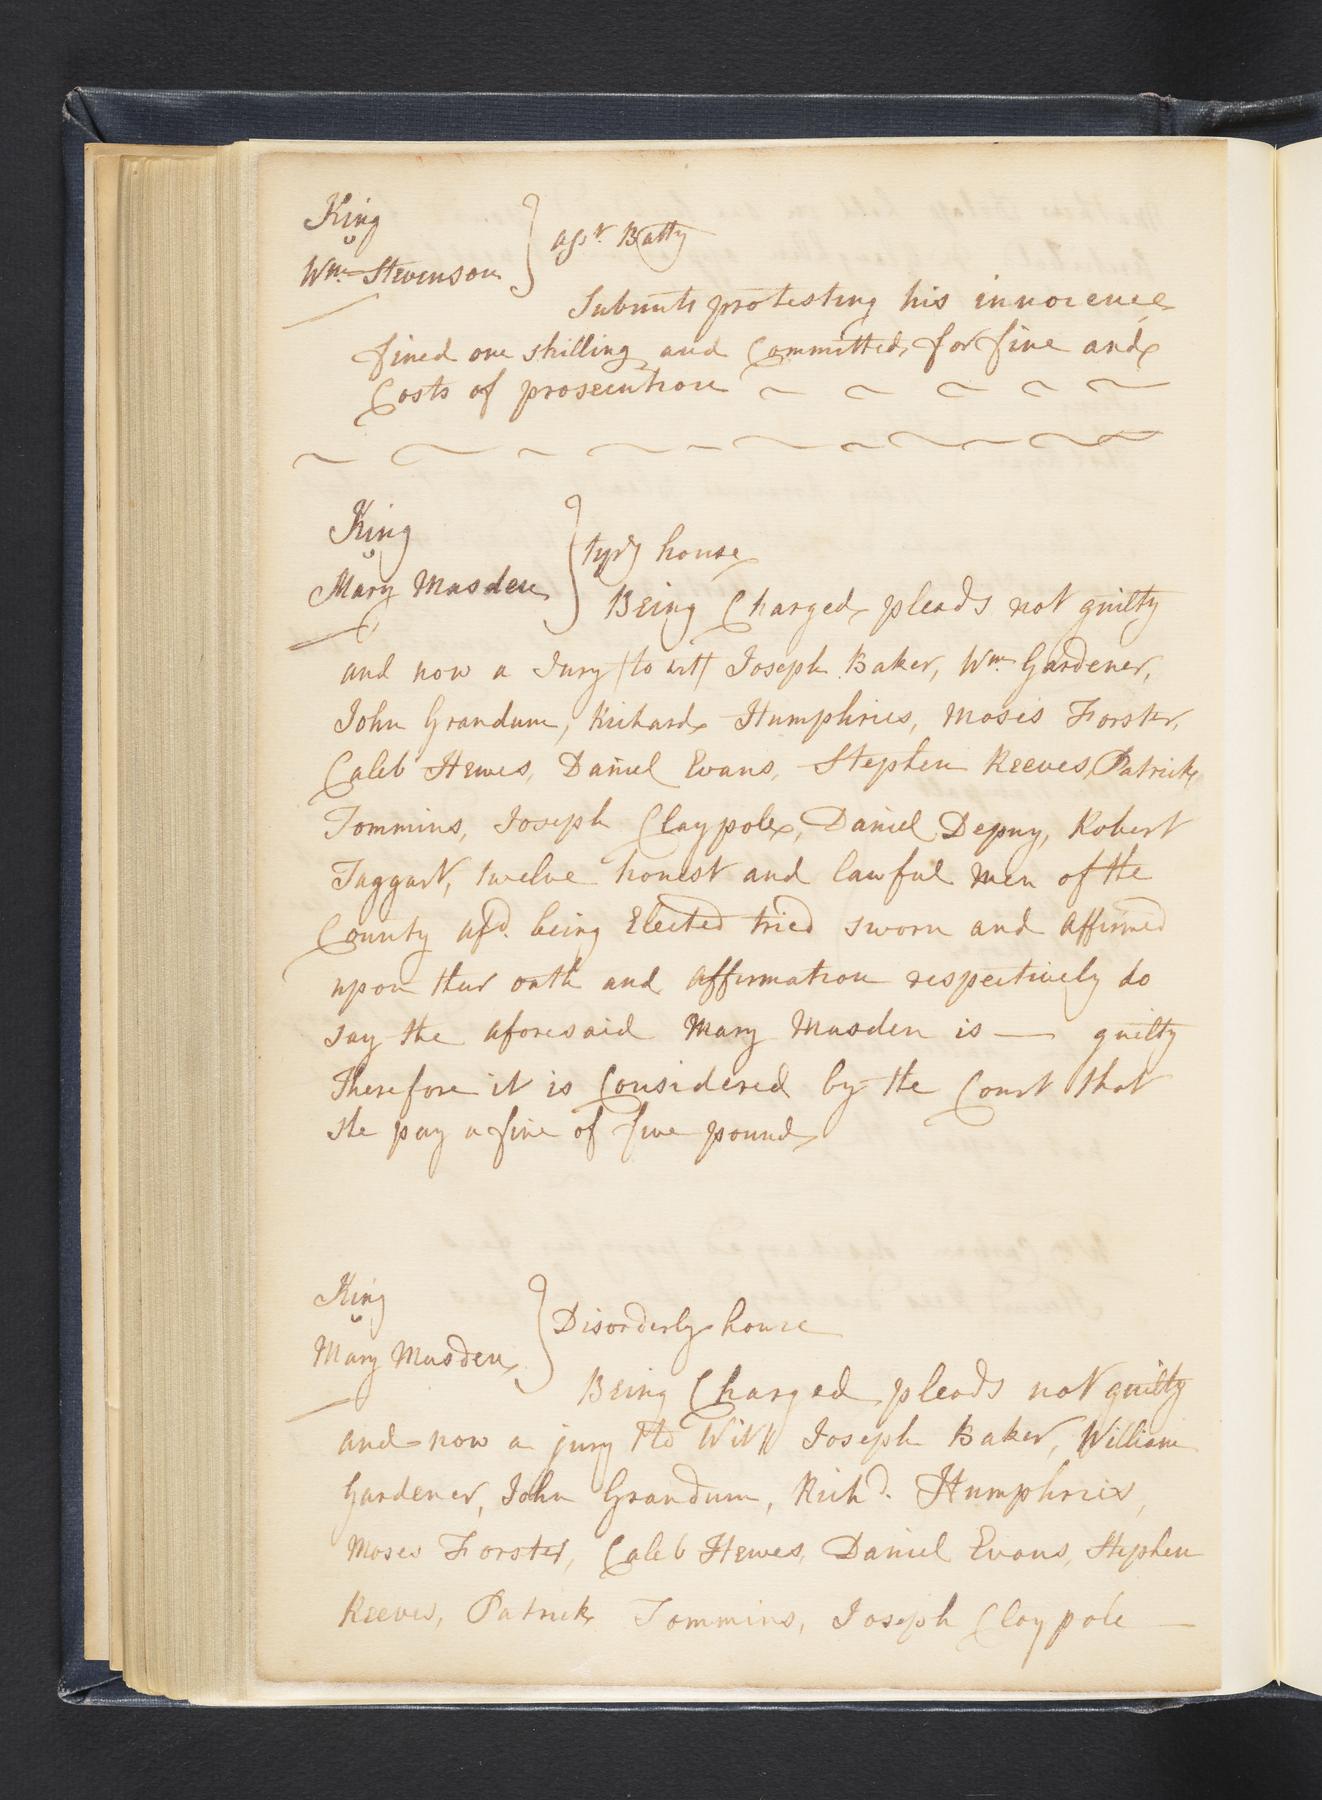 King
v
Wm. Stevenson
asst. Batty
Submits protesting his innocence
fined one shilling and Committed for fine and
Costs of prosecution
King
v
Mary Masden
house
Being Charged pleads not guilty
and now a Jury (to wit) Joseph Baker, Wm. Gardener,
John Grandum, Richard Humphries, Moses Forster,
Caleb Hewes, Daniel Evans, Stephen Reeves, Patrick
Tommins, Joseph Claypole, Daniel Depuy, Robert
Taggart, twelve honest and lawful men of the
County afd. being Elected tried sworn and Affirmed
upon their oath and affirmation respectively do
say the aforesaid Mary Masden is — guilty
Therefore it is Considered by the Court that
she pay a fine of five pound
King
v
Mary Masden
Disorderly house
Being Charged pleads not guilty
and now a jury (to Wit) Joseph Baker, William
Gardener, John Grandum, Richd. Humphries,
Moses Forster, Caleb Hewes, Daniel Evans, Stephen
Reeves, Patrick Tommins, Joseph Claypole —